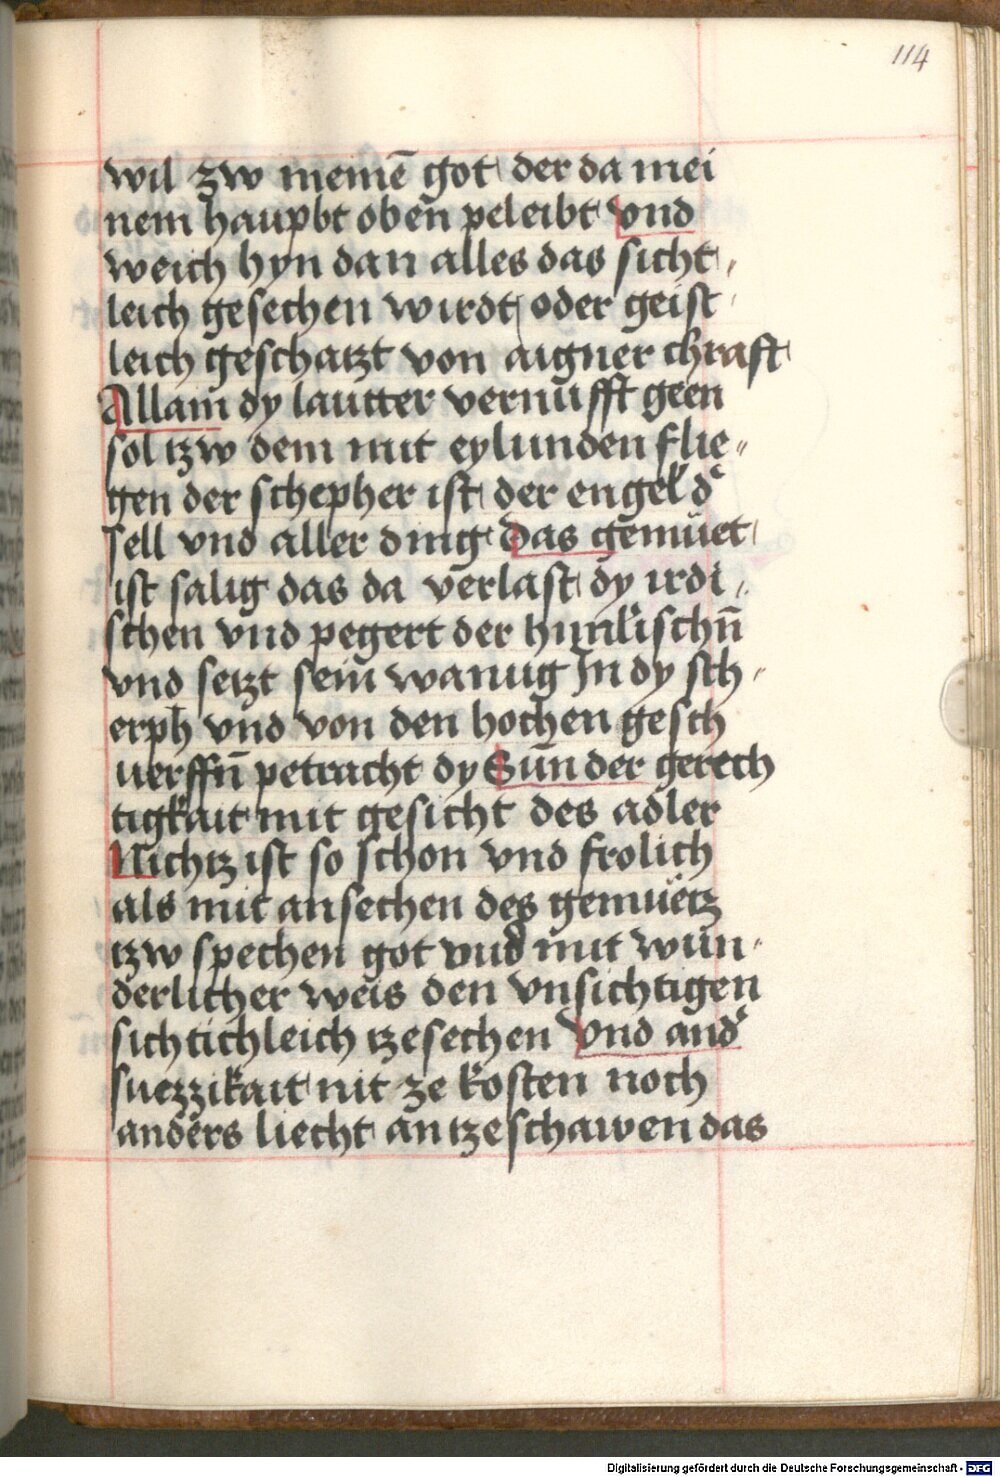 114
wil zw meinē got der da mei
nem haupbt oben peleibt vnd
weich hyn dan alles das sicht-
leich gesechen wirdt oder geist-
leich geschatzt von aigner chraft
Allain dy lautter vernūfft geen
sol tzw dem mit eylunden flie-
gen der schepher ist der engel d'
sell vnd aller ding Das gemüet
ist salig das da verlast dy irdi-
schen vnd pegert der himlischn̄
vnd setzt sein wanūg In dy sch-
erph vnd von den hochen gesch
uerffn̄ petracht dy Sūn der gerech
tigkait mit gesicht des adler
Nichtz ist so schon vnd frolich
als mit ansechen des gemüetz
tzw spechen got vnd mit wun-
derlicher weis den vnsichtigen
sichtichleich tzesechen Vnd and'
suezzikait nit ze kosten noch
anders liecht an tzeschawen das
Digitalisierung gefördert durch die Deutsche Forschungsgemeinschaft - DFG